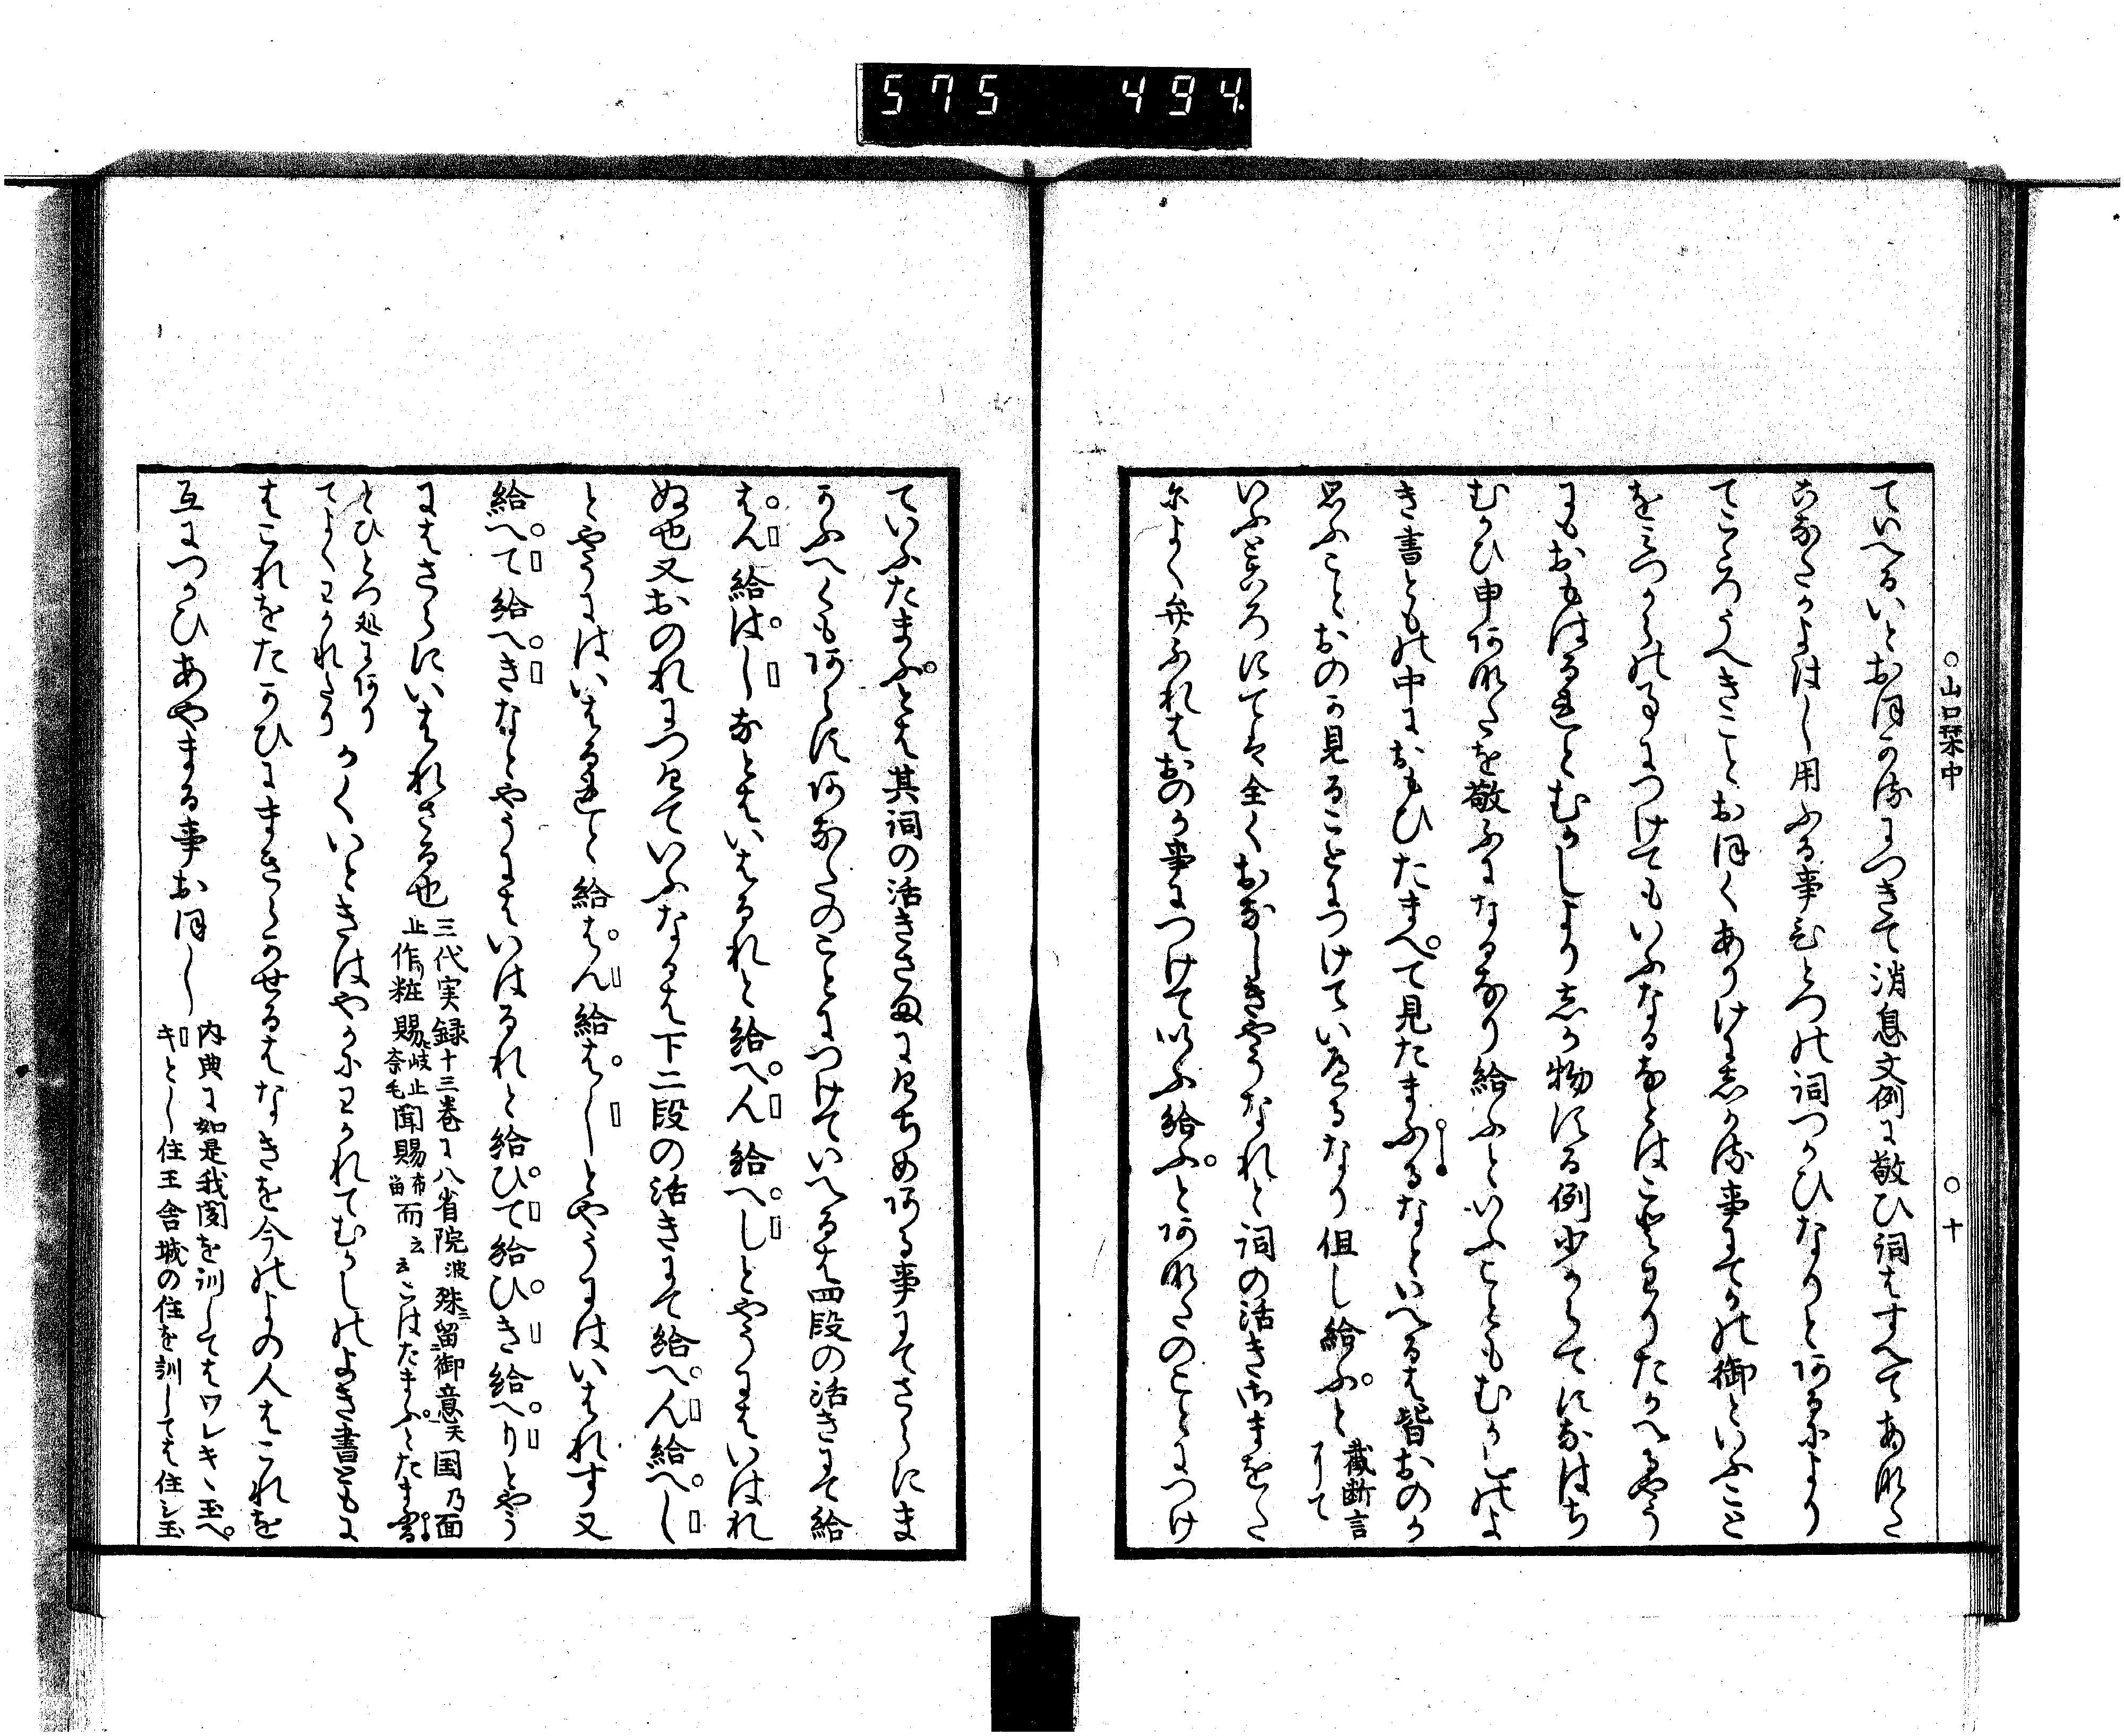 575 494.
○山口栞中 ○十
ていへるいとおほかるにつきて消息文例に敬ひ詞はすへてあなた
こなたかよはし用ふる事ひとつの詞つかひなりとあるによりて
てこゝろうへきことおほくありけに志かる事にてかの御といふこと
をみつからの事につけてもいふなるなとはことわりたかへるやう
にもおもはるれとむかしより志か物する例少からてすなはち
むかひ申あなたを敬ふになるなり給ふといふこともむかしのよ
き書ともの中におもひたまへて見たまふるなといへるは皆おのか
思ふことおのか見ることにつけていへるなり但し給ふと
截断言
にて
いふところにては全くおなしきやうなれと詞の活きさまをた
によく弁ふれはおのか事につけていふ給ふとあなたのことにつけ
ていふたまふとは其詞の活きさまにけちめある事にてさらにま
かふへくもあらすあなたのことにつけていへるは四段の活きにて給
はん給はしなとはいはるれと給へん給へしとやうにはいはれ
ぬ也又おのれにつけていふなるは下二段の活きにて給へん給へし
とやうにはいはるれと給はん給はしとやうにはいはれす又
給へて給へきなとやうにはいはるれと給ひて給ひき給へりとやう
にはさらにいはれさる也
三代実録十三巻に八省院波殊留御意天国乃面
止作粧賜岐止奈毛聞賜布留而云云こはたまふとたまふる
とひとつ処にありてよくわかれたり
かくいときはやかにわかれてむかしのよき書ともに
はこれをたかひにまきらかせるはなきを今のよの人はこれを
互につかひあやまる事おほし
内典に如是我聞を訓してはワレキヽ玉ヘ
キとし住王舎城の住を訓しては住シ玉